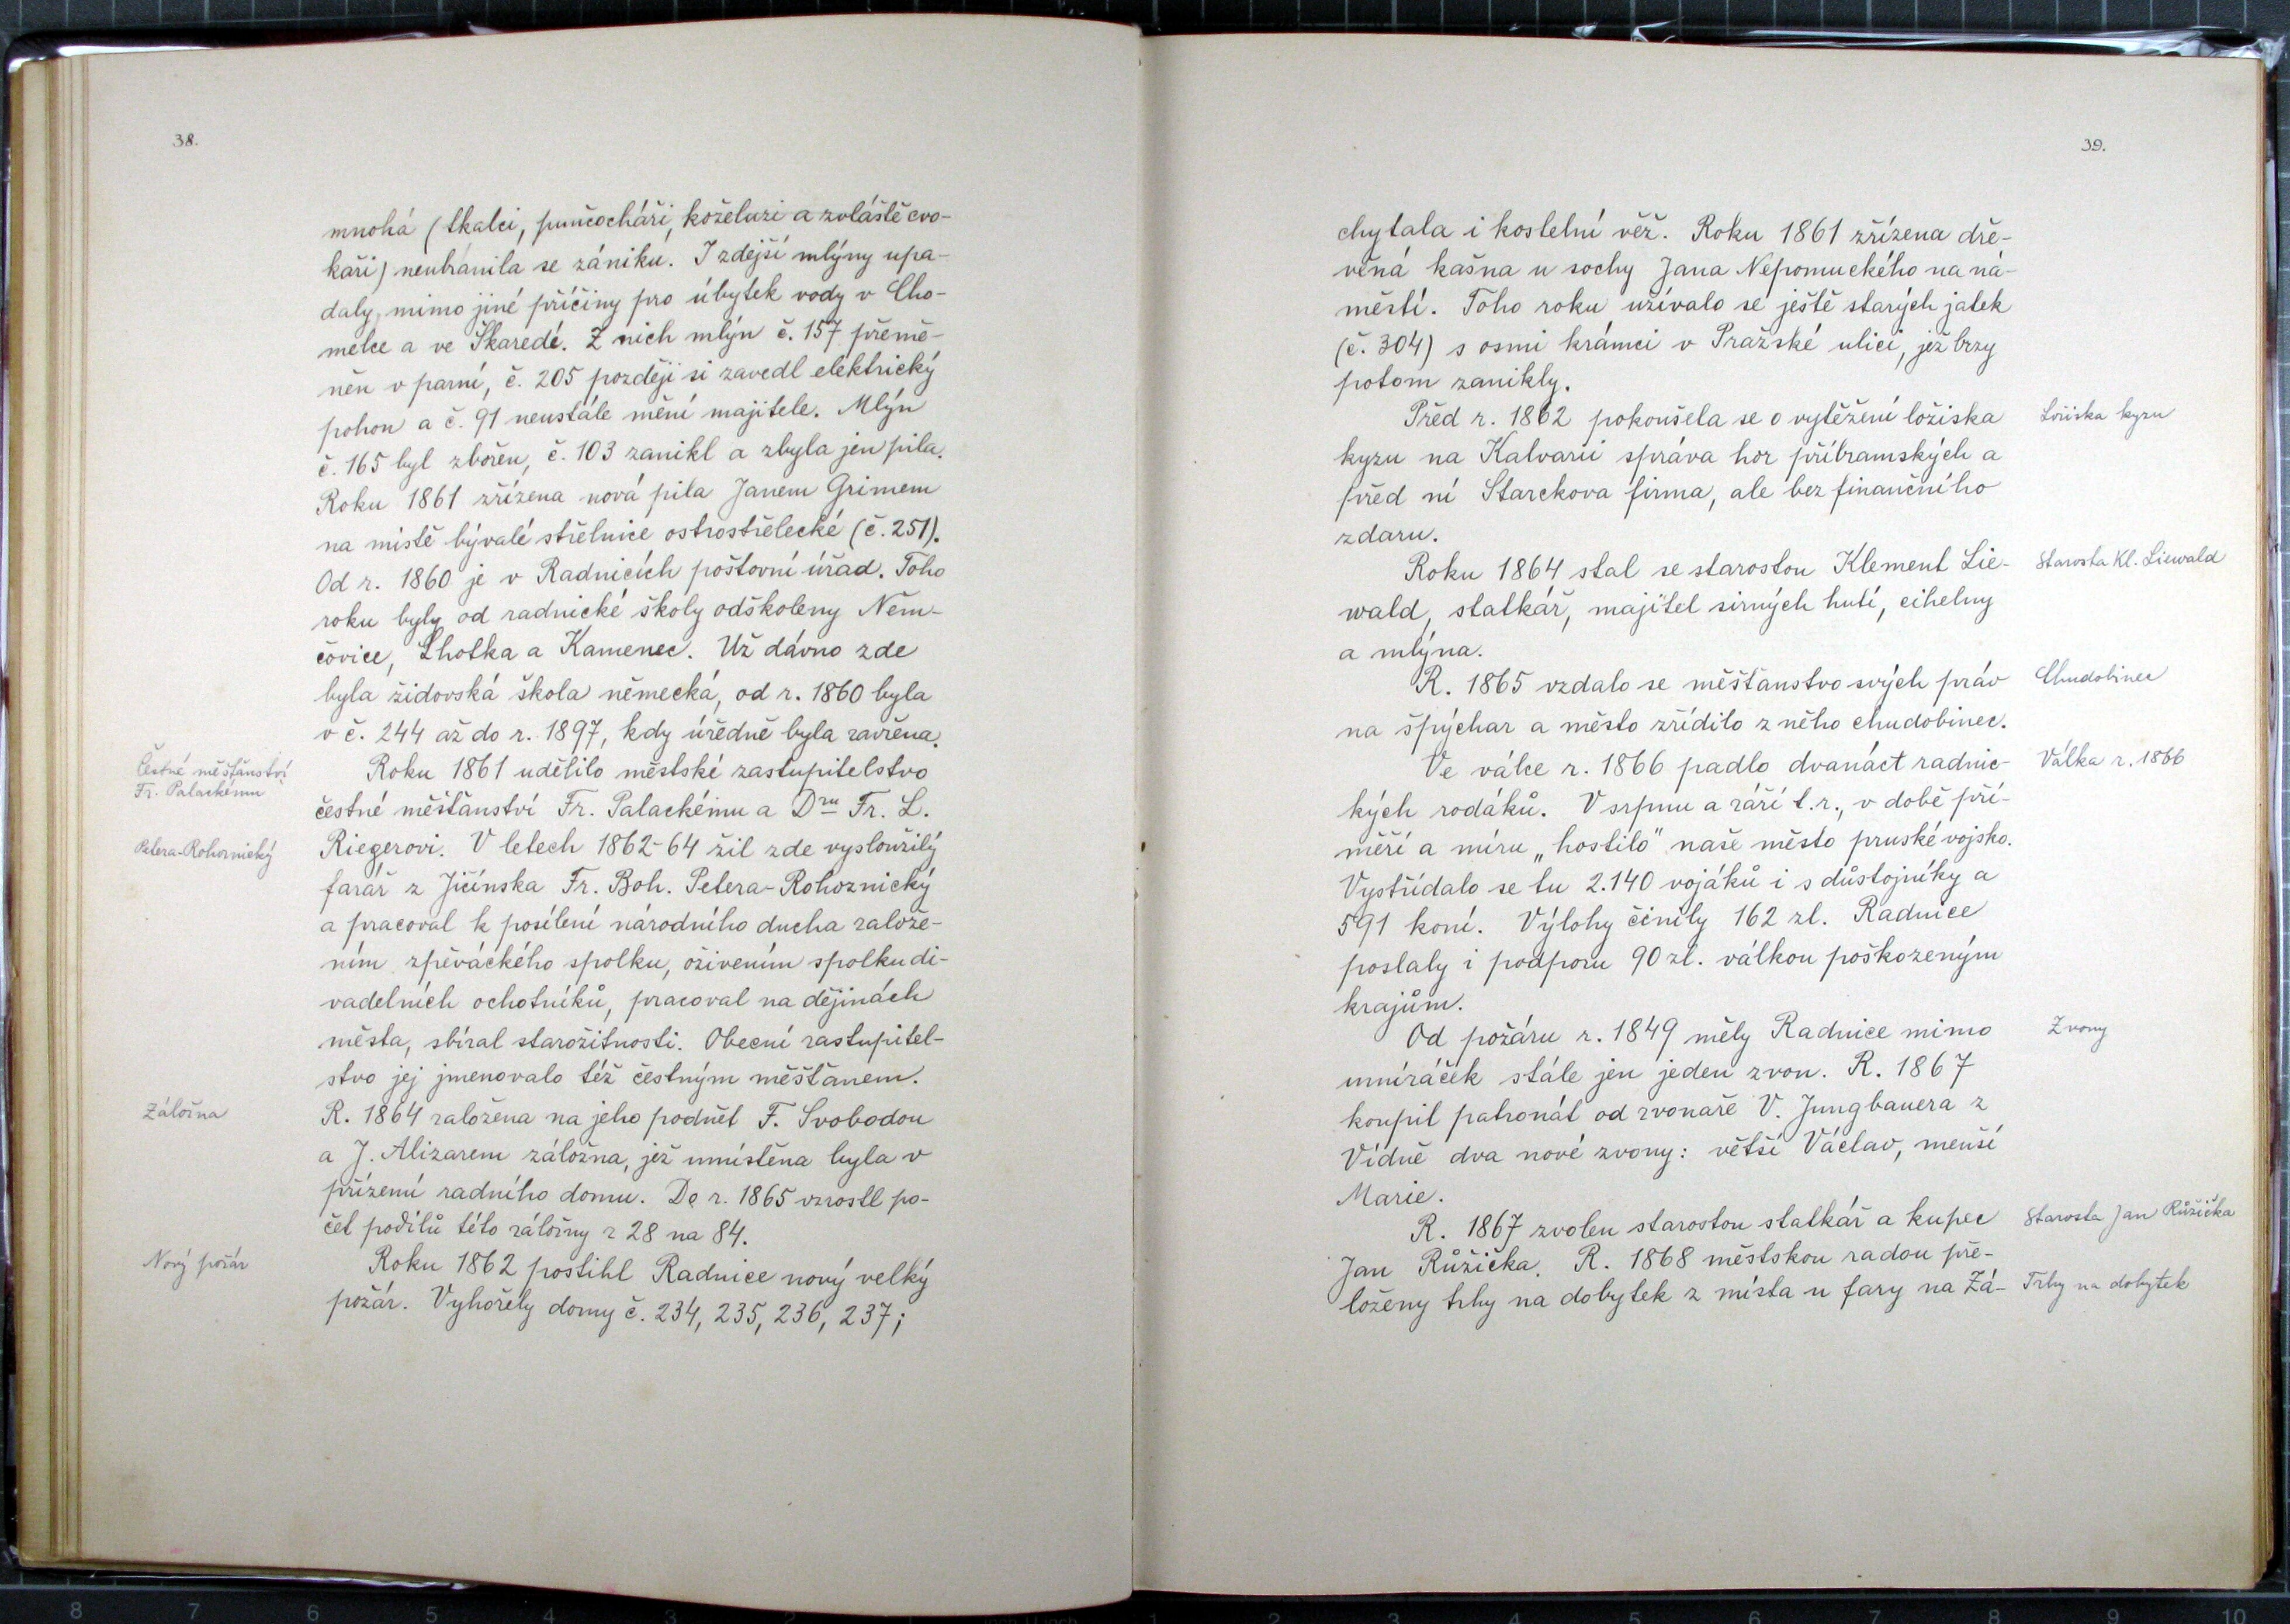 38.
mnohá (tkalci, punčocháři, koželuzi a zvláště cvo-
kaři) neubránila se zániku. I zdejší mlýny upa-
daly, mimo jiné příčiny pro úbytek vody v Cho-
melce a ve Škaredé. Z nich mlýn č. 157 přemě-
něn v parní, č. 205 později si zavedl elektrický
pohon a č. 91 neustále mění majitele. Mlýn
č. 165 byl zbořen, č. 103 zanikl a zbyla jen pila.
Roku 1861 zřízena nová pila Janem Grimem
na místě bývalé střelnice ostrostřelecké (č. 251).
Od r. 1860 je v Radnicích poštovní úřad. Toho
roku byly od radnické školy odškoleny Něm-
čovice, Lhotka a Kamenec. Už dávno zde
byla židovská škola německá, od r. 1860 byla
v č. 244 až do r. 1897, kdy úředně byla zavřena.
Čestné měšťanství
Fr. Palackému
Roku 1861 udělilo městské zastupitelstvo
čestné měšťanství Fr. Palackému a Dru Fr. L.
Petera-Rohoznický
Riegerovi. V letech 1862-64 žil zde vysloužilý
farář z Jičínska Fr. Boh. Petera-Rohoznický
a pracoval k posílení národního ducha založe-
ním zpěváckého spolku, oživením spolku di-
vadelních ochotníků, pracoval na dějinách
města, sbíral starožitnosti. Obecní zastupitel-
stvo jej jmenovalo též čestným měšťanem.
Záložna
R. 1864 založena na jeho podnět F. Svobodou
a J. Alizarem záložna, jež umístěna byla v
přízemí radního domu. Do r. 1865 vzrostl po-
čet podílů této záložny z 28 na 84.
Nový požár
Roku 1862 postihl Radnice nový velký
požár. Vyhořely domy č. 234, 235, 236, 237;
39.
chytala i kostelní věž. Roku 1861 zřízena dře-
věná kašna u sochy Jana Nepomuckého na ná-
městí. Toho roku užívalo se ještě starých jatek
(č. 304) s osmi krámci v Pražské ulici, jež brzy
potom zanikly.
Před r. 1862 pokoušela se o vytěžení ložiska
Ložiska kyzu
kyzu na Kalvarii správa hor příbramských a
před ní Starckova firma, ale bez finančního
zdaru.
Roku 1864 stal se starostou Klement Lie-
Starosta Kl. Liewald
wald, statkář, majitel sirných hutí, cihelny
a mlýna.
R. 1865 vzdalo se měšťanstvo svých práv
Chudobinec
na špýchar a město zřídilo z něho chudobinec.
Ve válce r. 1866 padlo dvanáct radnic-
Válka r. 1866
kých rodáků. V srpnu a září t.r., v době pří-
měří a míru „hostilo" naše město pruské vojsko.
Vystřídalo se tu 2.140 vojáků i s důstojníky a
591 koní. Výlohy činily 162 zl. Radnice
poslaly i podporu 90 zl. válkou poškozeným
krajům.
Od požáru r. 1849 měly Radnice mimo
Zvony
umíráček stále jen jeden zvon. R. 1867
koupil patronát od zvonaře V. Jungbauera z
Vídně dva nové zvony: větší Václav, menší
Marie.
R. 1867 zvolen starostou statkář a kupec
Starosta Jan Růžička
Jan Růžička. R. 1868 městskou radou pře-
loženy trhy na dobytek z místa u fary na Zá-
Trhy na dobytek
8 7 6 5 4 3 2 1 1 2 3 4 5 6 7 8 9 10